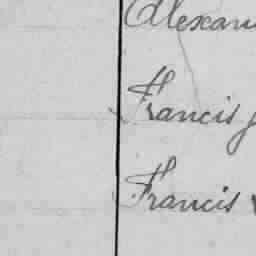 Alexan
Francis J
Francis